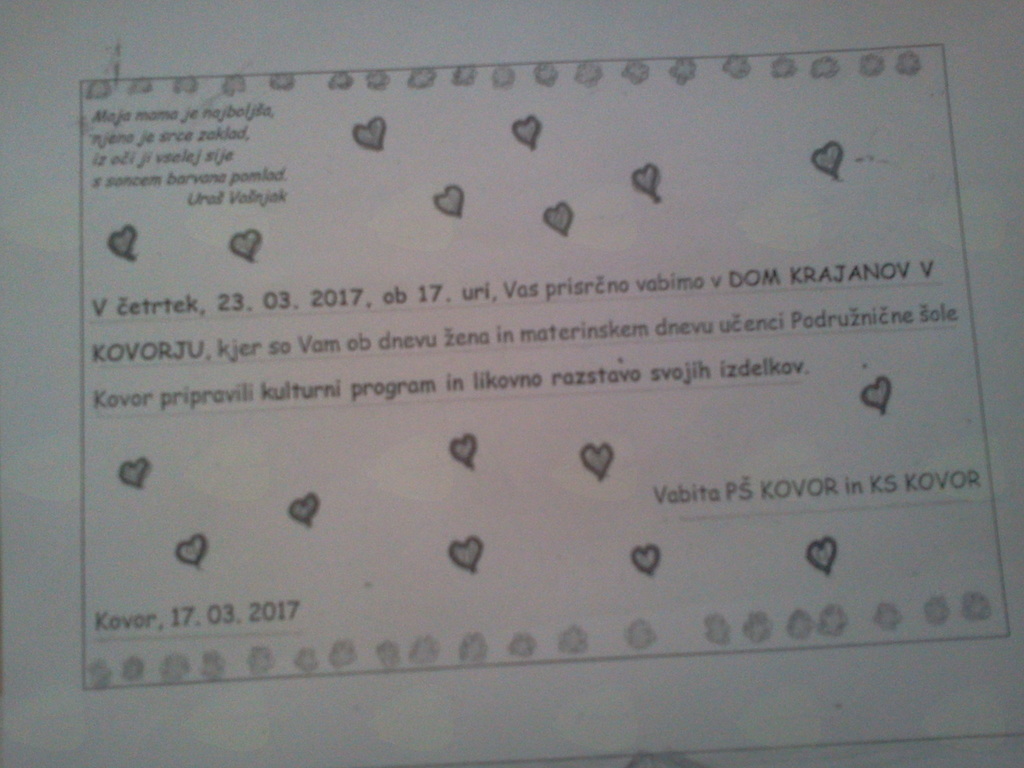 Moja mama je najboljša,
njeno je srce zaklad,
iz oči ji vselej sije
s soncem barvana pomlad.
Uroš Vošnjak
V četrtek, 23. 03. 2017, ob 17. uri, Vas prisrčno vabimo v DOM KRAJANOV V
KOVORJU, kjer so Vam ob dnevu žena in materinskem dnevu učenci Podružnične šole
Kovor pripravili kulturni program in likovno razstavo svojih izdelkov.
Vabita PŠ KOVOR in KS KOVOR
Kovor, 17. 03. 2017